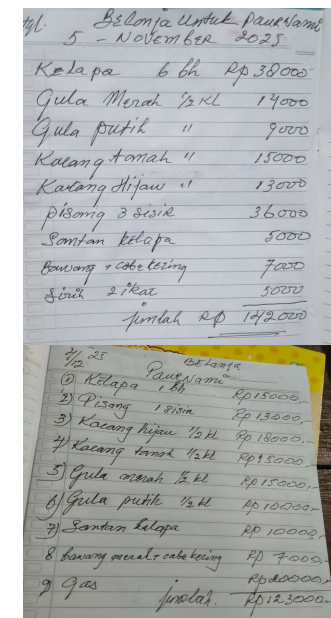 tgl. Belanja Untuk PAURNAMi
5 - NOVEMBER 2025
Kelapa 6 bh Rp 38000
Gula Merah 1/2 kl 14000
Gula putih " 9000
Kacang tanah " 15000
Kacang Hijau " 13000
Pisang 3 sisir 36000
Santan kelapa 5000
Bawang + cabe kering 7000
Sirih 2 ikat 5000
jumlah Rp 142000
7/12 25 BELANJA
PAURNAMi
1) Kelapa 1 bh Rp 15000,-
2) Pisang 1 sisir Rp 13000,-
3) Kacang hijau 1/2 kl Rp 18000,-
4) Kacang tanah 1/2 kl Rp 15000,-
5) Gula merah 1/2 kl Rp 15000,-
6) Gula putih 1/2 kl Rp 10000,-
7) Santan kalapa Rp 10000,-
8 bawang merah + cabe kering Rp 7000,-
9 Gas Rp 20000,-
jumlah. Rp 123000,-